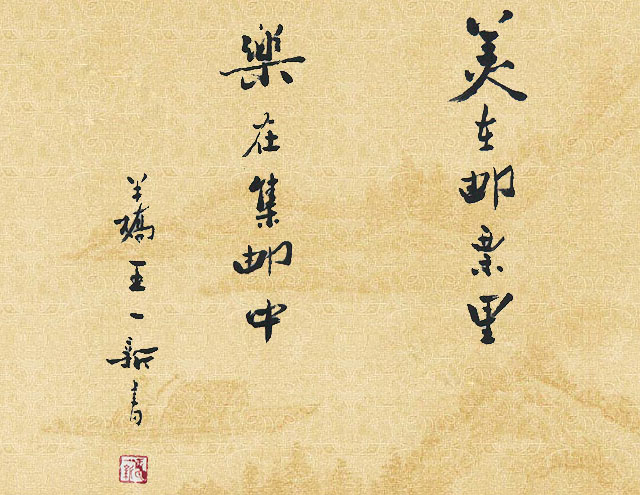 美在邮票里
樂在集邮中
羊橋王一新書